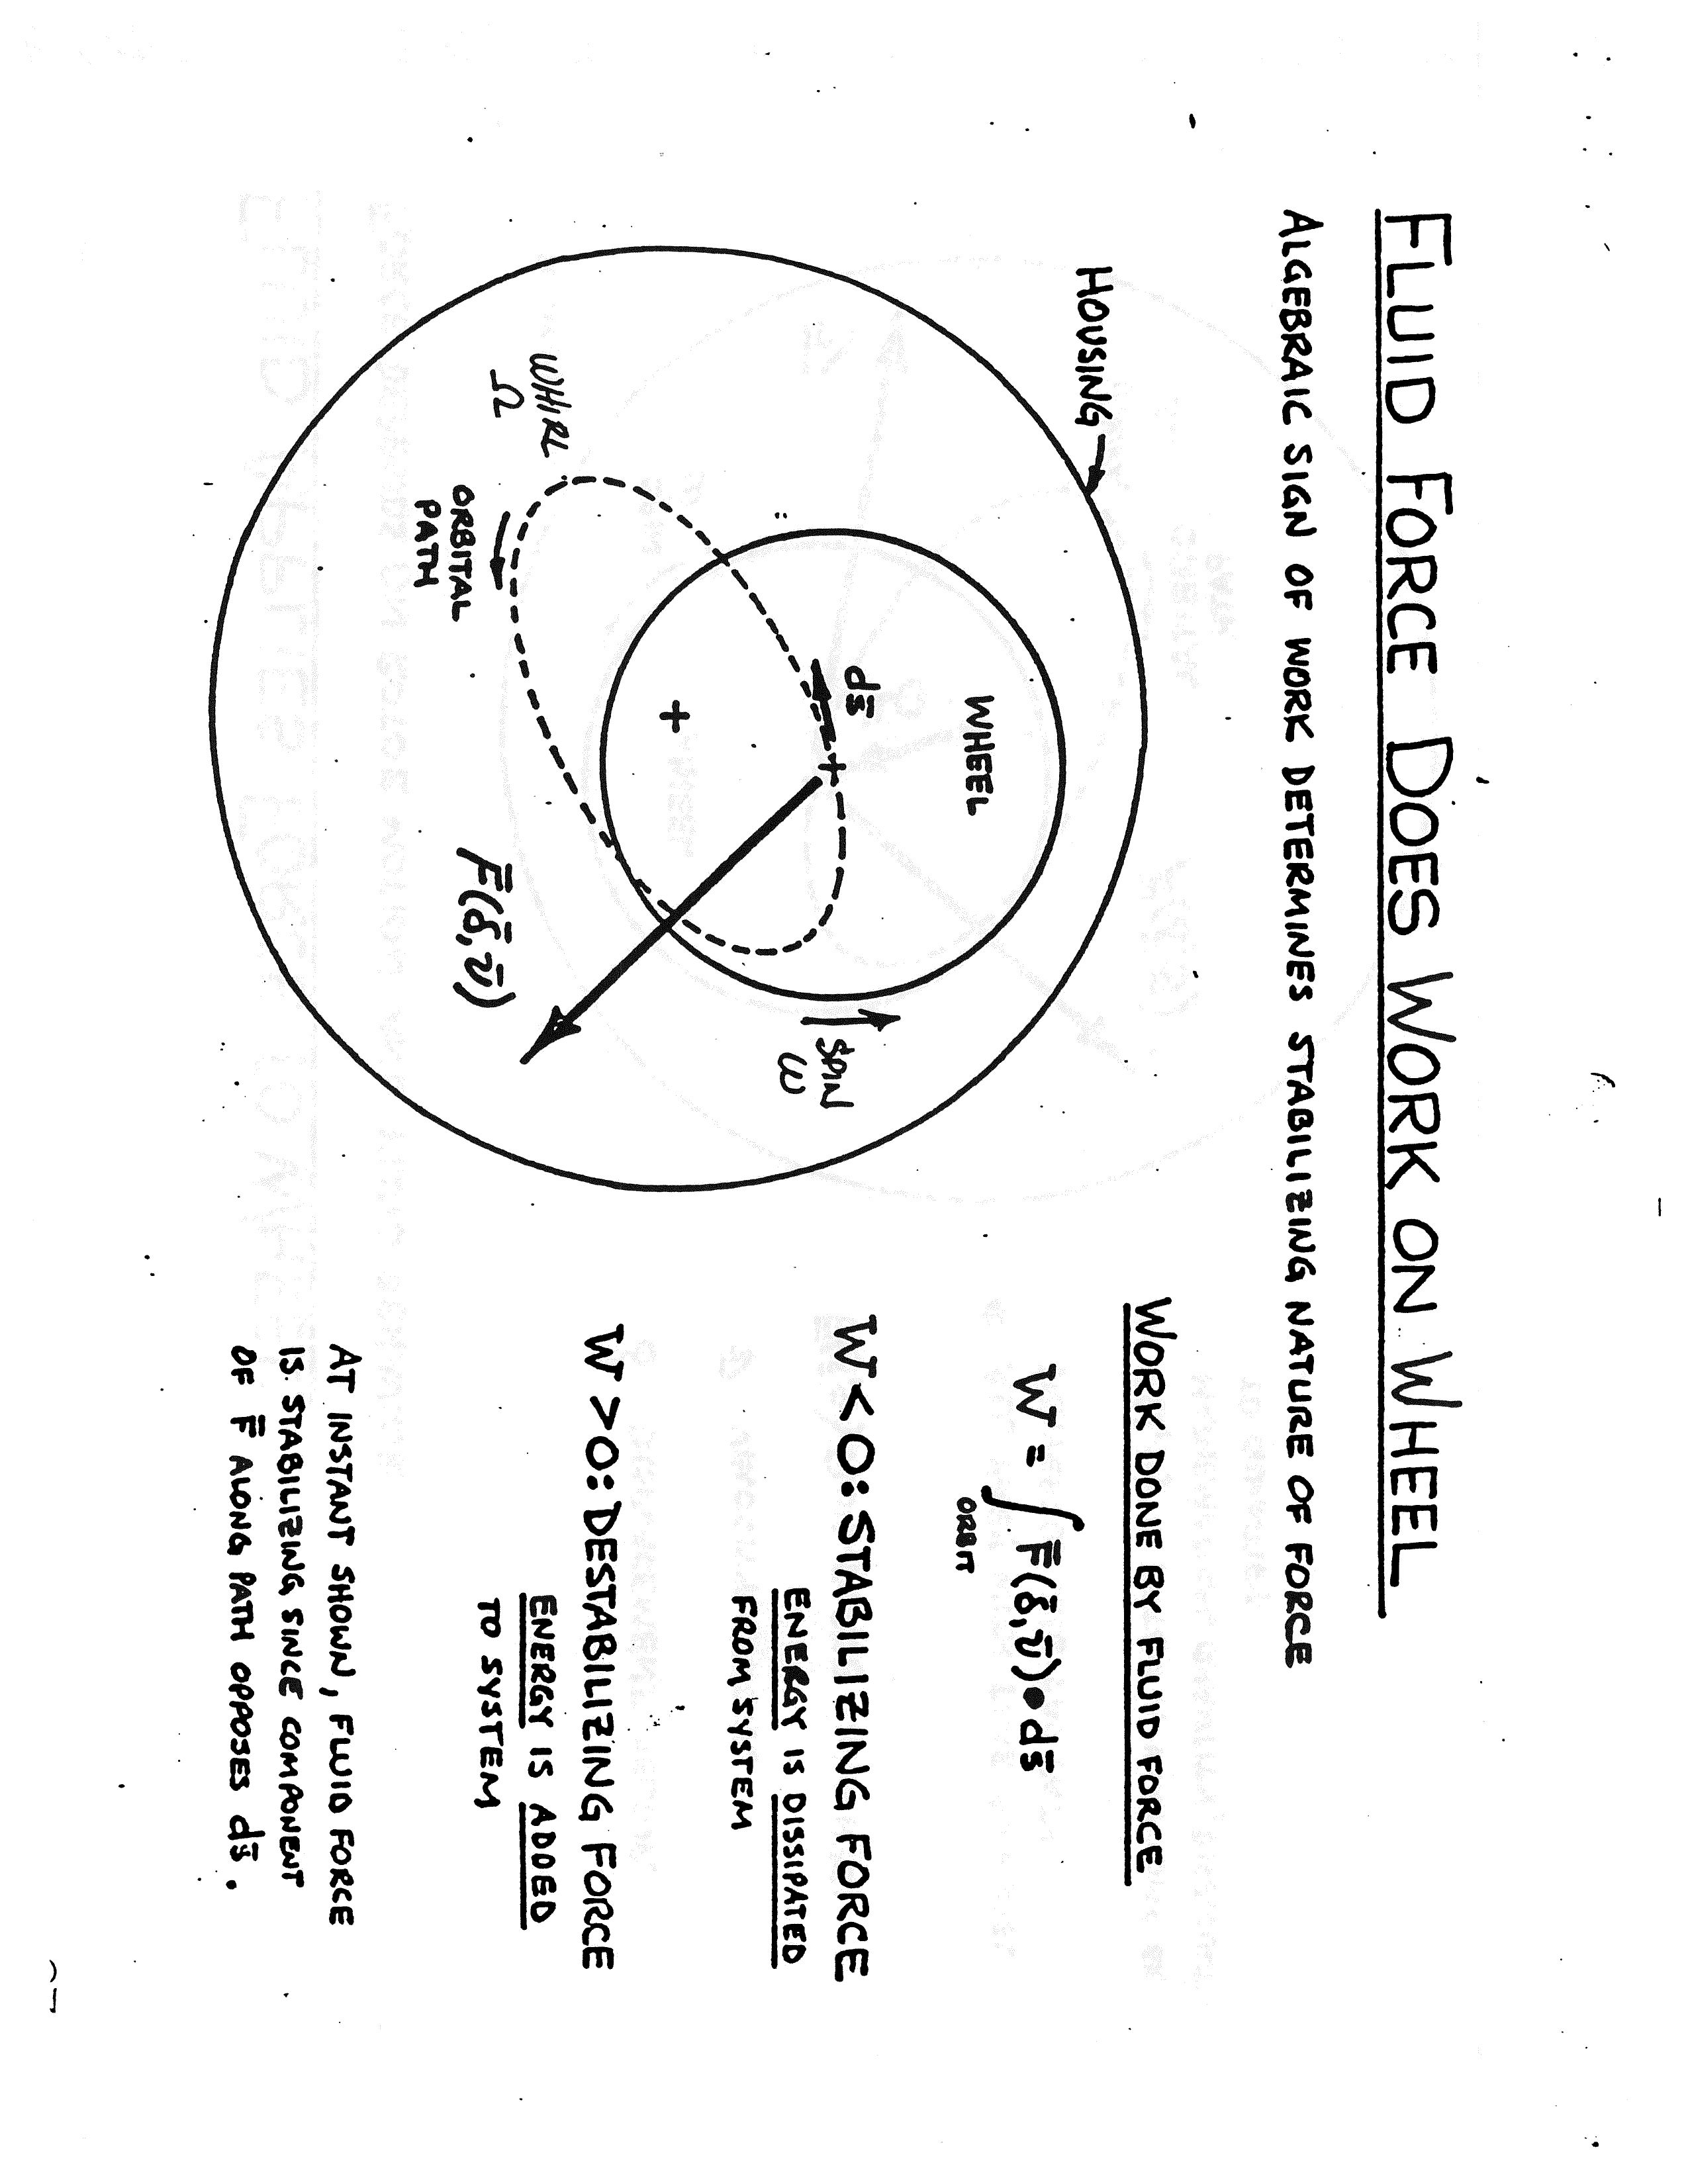 FLUID FORCE DOES WORK ON WHEEL
ALGEBRAIC SIGN OF WORK DETERMINES STABILIZING NATURE OF FORCE
HOUSING
WHEEL
ds̄
SPIN
ω
WHIRL
Ω
ORBITAL
PATH
F̄(δ̄,v̄)
WORK DONE BY FLUID FORCE
W = ∫ F̄(δ̄,v̄)•ds̄
ORBIT
W<0: STABILIZING FORCE
ENERGY IS DISSIPATED
FROM SYSTEM
W>0: DESTABILIZING FORCE
ENERGY IS ADDED
TO SYSTEM
AT INSTANT SHOWN, FLUID FORCE
IS STABILIZING SINCE COMPONENT
OF F̄ ALONG PATH OPPOSES ds̄.